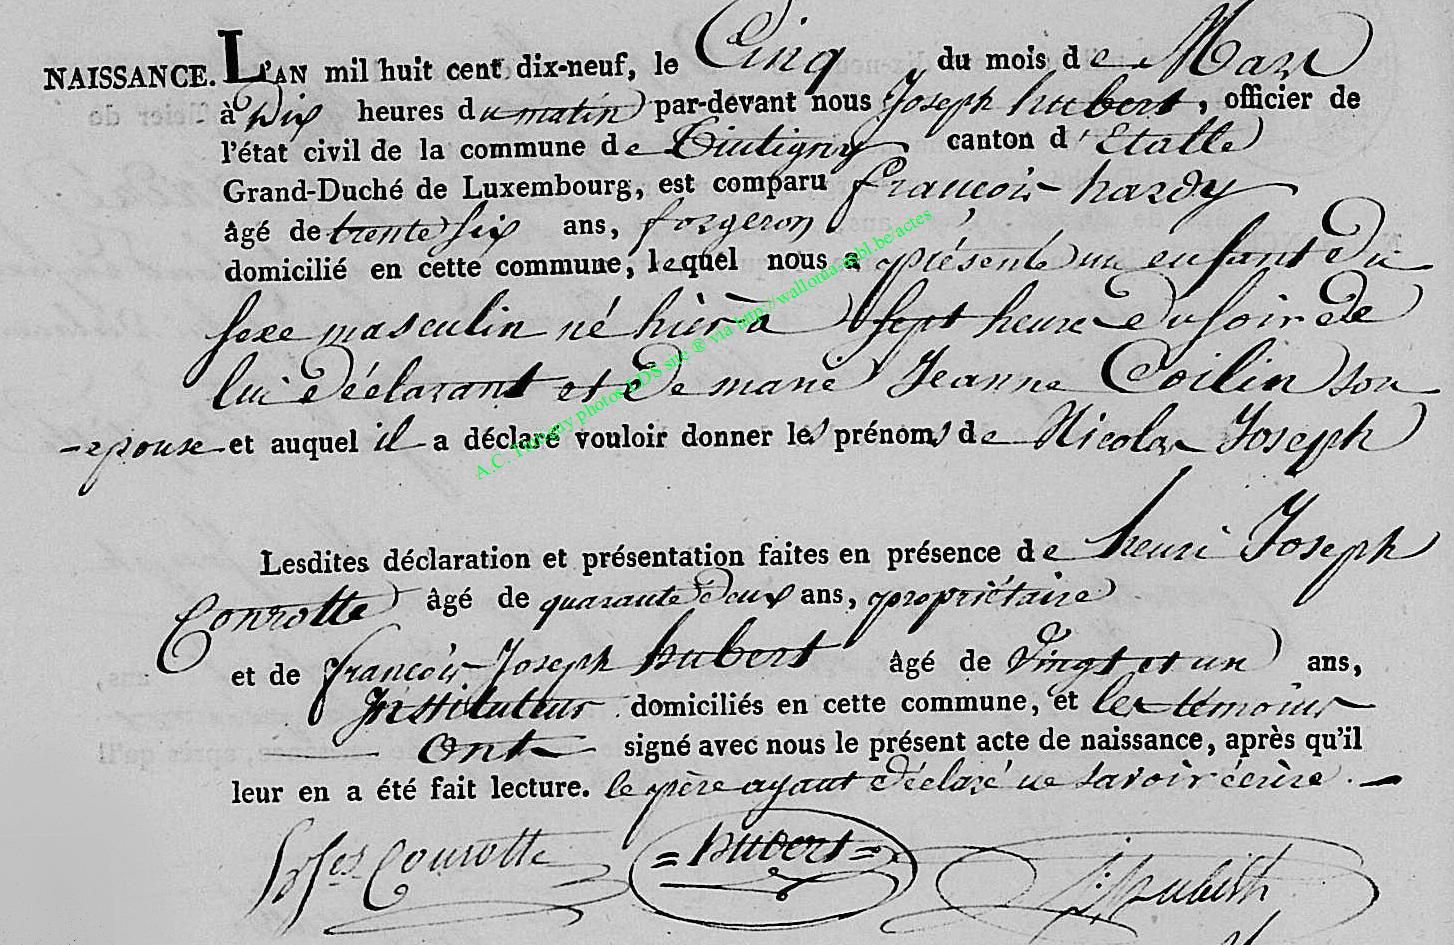 NAISSANCE. L'AN mil huit cent dix-neuf, le Cinq du mois de Mars
à Dix heures du matin par-devant nous Joseph hubert, officier de
l'état civil de la commune de Tintigny canton d'Etalle
Grand-Duché de Luxembourg, est comparu françois hardy
âgé de trente six ans, forgeron
domicilié en cette commune, lequel nous a présenté un enfant du
sexe masculin né hier à sept heure du soir de
lui déclarant et de marie Jeanne Coilin son
epouse et auquel il a déclaré vouloir donner les prénoms de Nicolas Joseph
Lesdites déclaration et présentation faites en présence de henri Joseph
Conrotte âgé de quarante deux ans, propriétaire
et de françois Joseph hubert âgé de vingt et un ans,
Instituteur domiciliés en cette commune, et les témoins
ont signé avec nous le présent acte de naissance, après qu'il
leur en a été fait lecture. le père ayant déclaré ne savoir écrire.
Conrotte = hubert = J: hubert
A.C. Tintigny photos LDS site ® via http://wallonia-asbl.be/actes